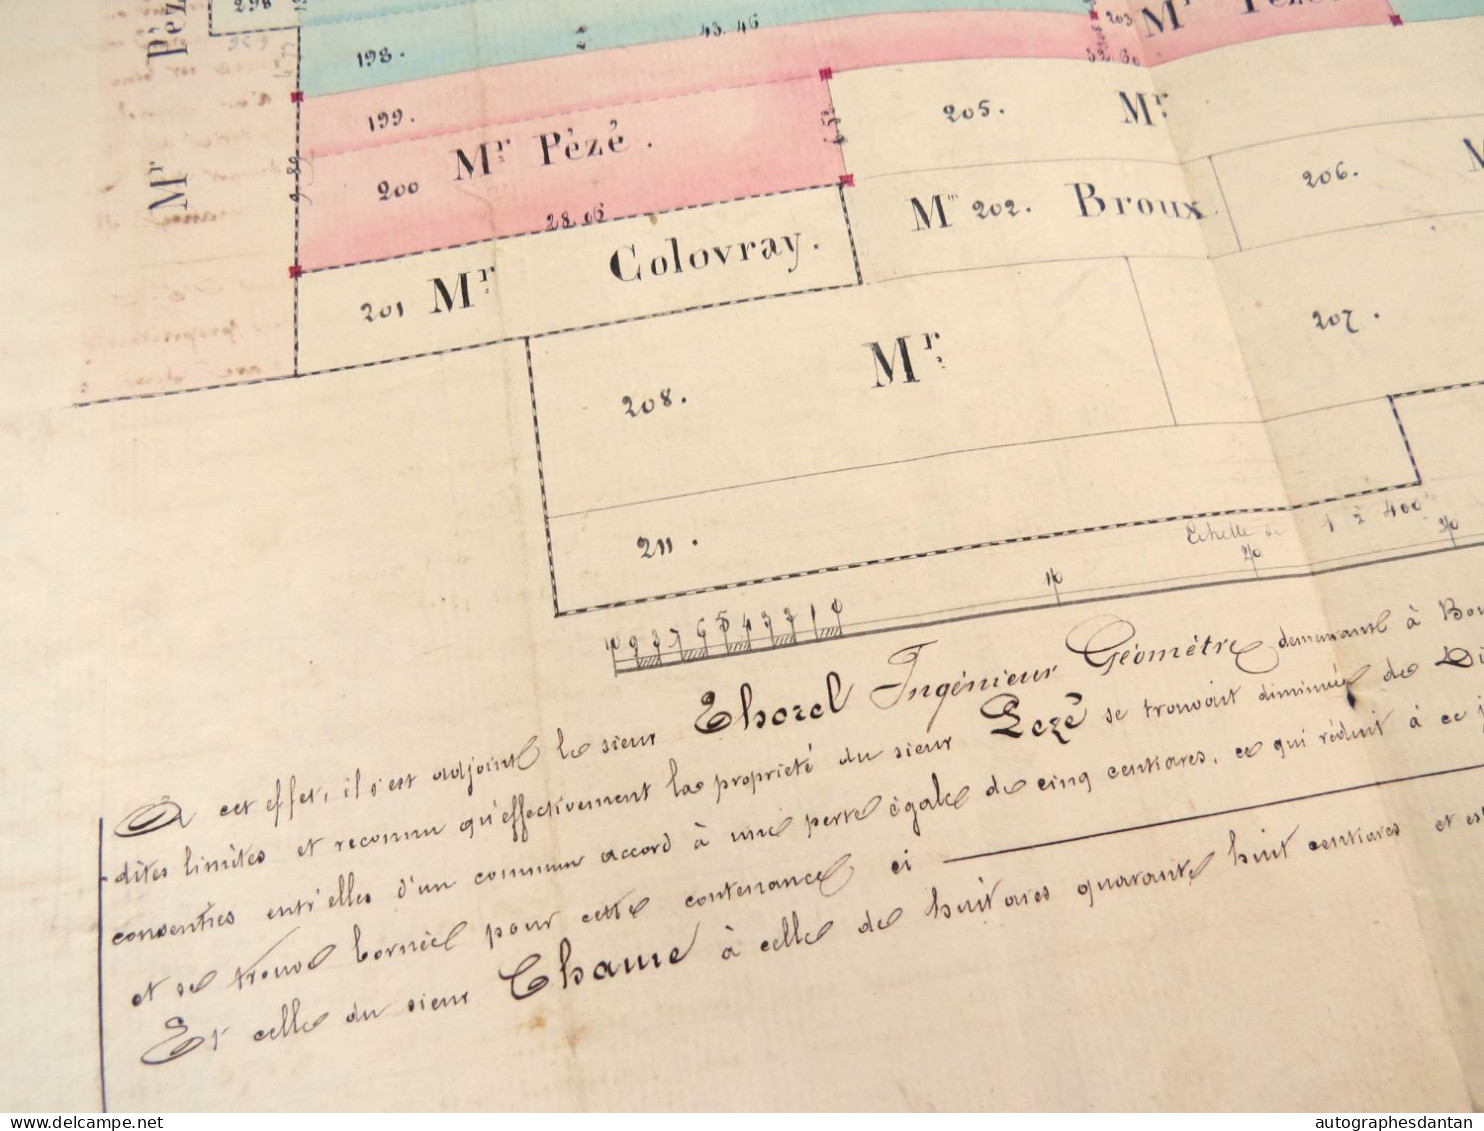 298
13
198.
43. 46
203
Mr Pèzé.
32. 60
Mr Pèzé
199.
Mr Pèzé.
200
9. 89
28. 06
205. Mr
Mme 202. Broux.
206.
201 Mr Colovray.
207.
208. Mr
211.
Echelle de 1 à 400e
10 9 8 7 6 5 4 3 2 1 0
10
20
30
A cet effet, il s'est adjoint le sieur Thorel Ingénieur Géomètre demeurant à Bou
dites limites et reconnu qu'effectivement la propriété du sieur Pezé se trouvait diminuée de Di
consenties entr'elles d'un commun accord à une perte égale de cinq centiares, ce qui réduit à ce j
et se trouve bornée pour cette contenance ci
Et celle du sieur Thame à celle de huit ares quarante huit centiares et est
autographesdantan
delcampe.net